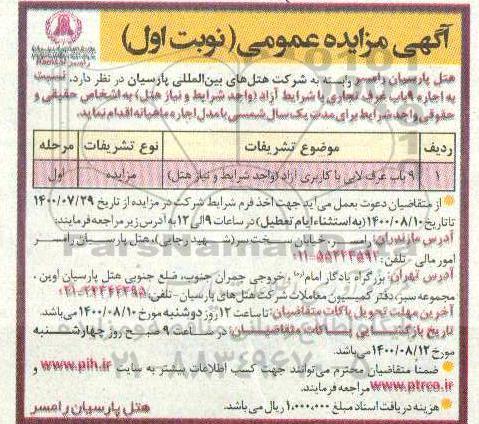 آگهی مزایده عمومی (نوبت اول)
هتل پارسیان رامسر وابسته به شرکت هتل‌های بین‌المللی پارسیان در نظر دارد، نسبت
به اجاره ۹ باب غرف تجاری با شرایط آزاد (واجد شرایط و نیاز هتل) به اشخاص حقیقی و
حقوقی واجد شرایط برای مدت یک سال شمسی با مدل اجاره ماهیانه اقدام نماید.
ردیف موضوع تشریفات نوع تشریفات مرحله
۱ ۹ باب غرف لابی با کاربری آزاد (واجد شرایط و نیاز هتل) مزایده اول
از متقاضیان دعوت بعمل می‌آید جهت اخذ فرم شرایط شرکت در مزایده از تاریخ ۱۴۰۰/۰۷/۲۹
تا تاریخ ۱۴۰۰/۰۸/۱۰ (به استثناء ایام تعطیل) در ساعات ۹ الی ۱۲ به آدرس زیر مراجعه فرمایند:
آدرس مازندران: رامسر، خیابان سخت سر (شهید رجایی)، هتل پارسیان رامسر
امور مالی - تلفن: ۵۵۲۲۳۵۹۳-۰۱۱
آدرس تهران: بزرگراه یادگار امام(ره)، خروجی چمران جنوب، ضلع جنوبی هتل پارسیان اوین،
مجموعه سبز، دفتر کمیسیون معاملات شرکت هتل‌های پارسیان - تلفن:
آخرین مهلت تحویل پاکات متقاضیان: تا ساعت ۱۲ روز دوشنبه مورخ ۱۴۰۰/۰۸/۱۰ می‌باشد.
تاریخ بازگشایی پاکات متقاضیان: در ساعت ۹ صبح روز چهارشنبه
مورخ ۱۴۰۰/۰۸/۱۲ می‌باشد.
ضمنا متقاضیان محترم می‌توانند جهت کسب اطلاعات بیشتر به سایت www.pih.ir و
www.ptrco.ir مراجعه فرمایند.
هزینه دریافت اسناد مبلغ ۱,۰۰۰,۰۰۰ ریال می‌باشد.
هتل پارسیان رامسر